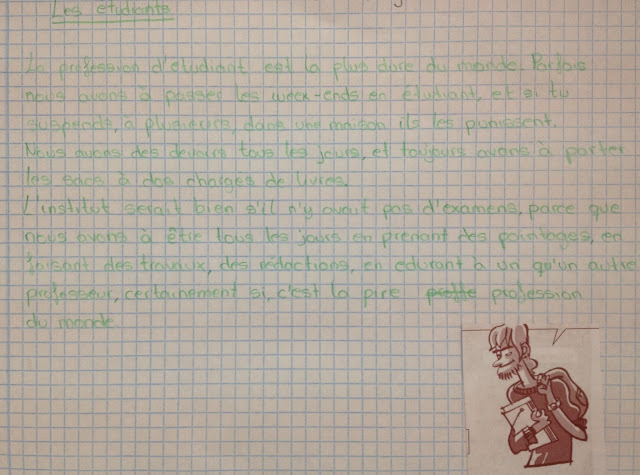 Les étudiants
La profession d'etudiant est la plus dure du monde. Parfois
nous avons à passer les week-ends en étudiant, et si tu
suspends, à plusieurs, dans une maison ils les punissent.
Nous avons des devoirs tous les jours, et toujours avons à porter
les sacs à dos charges de livres.
L'institut serait bien s'il n'y avait pas d'examens, parce que
nous avons à être tous les jours en prenant des pointages, en
faisant des travaux, des rédactions, en edurant à un qu'un autre
professeur, certainement si, c'est la pire profession
du monde.